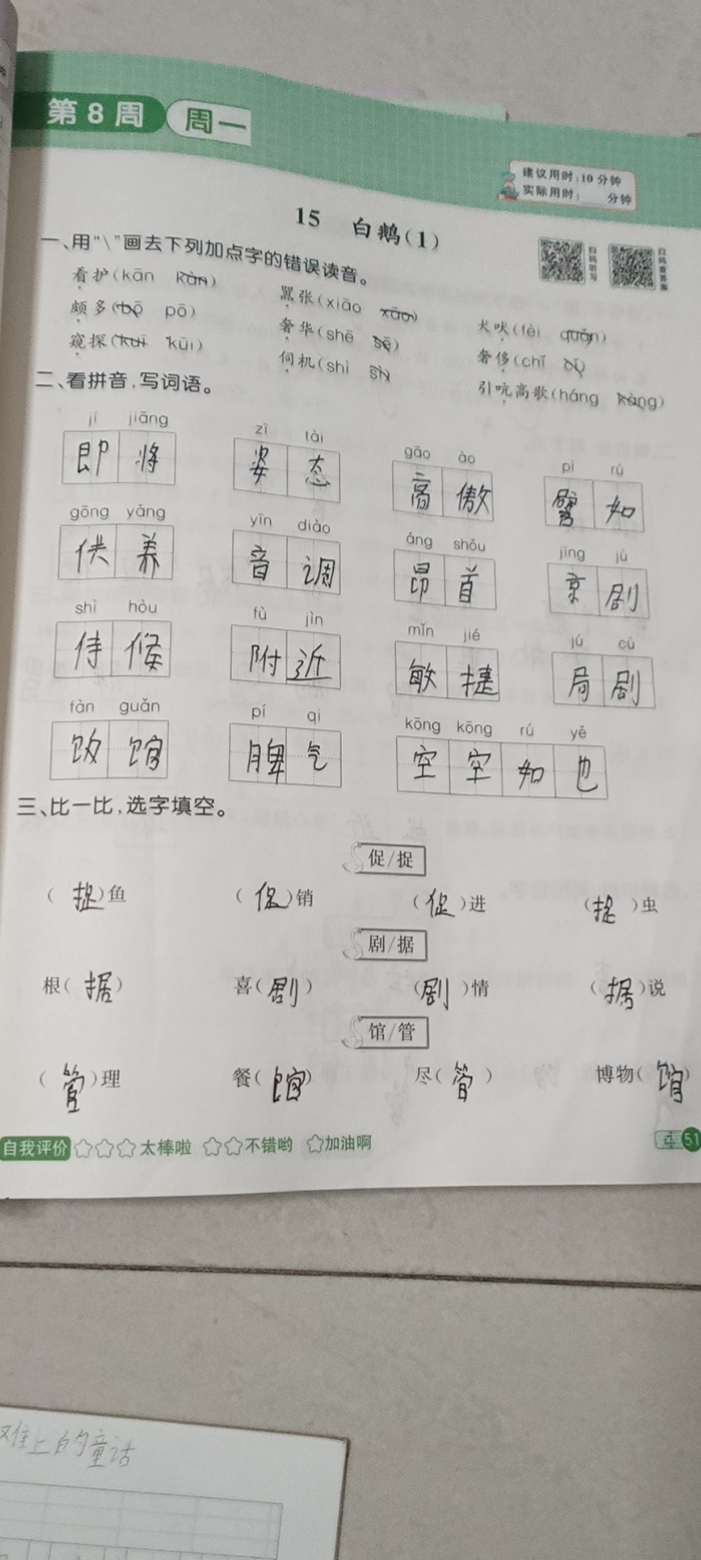 第8周 周一
建议用时:10分钟
实际用时: 分钟
15 白鹅(1)
扫码听写
扫码查答案
一、用“\”画去下列加点字的错误读音。
看护(kān kàn) 嚣张(xiāo xāo) 犬吠(fèi quǎn)
颇多(bō pō) 奢华(shē sē) 奢侈(chǐ cǐ)
窥探(kuī kūi) 伺机(shì sì) 引吭高歌(háng kàng)
二、看拼音,写词语。
jí jiāng zī tài gāo ào pì rú
即将 姿态 高傲 譬如
gōng yǎng yīn diào áng shǒu jīng jù
供养 音调 昂首 京剧
shì hòu fù jìn mǐn jié jú cù
侍候 附近 敏捷 局剧
fàn guǎn pí qi kōng kōng rú yě
饭馆 脾气 空空如也
三、比一比,选字填空。
促/捉
(捉)鱼 (促)销 (促)进 (捉)虫
剧/据
根(据) 喜(剧) (剧)情 (据)说
馆/管
(管)理 餐(馆) 尽(管) 博物(馆)
自我评价 ☆☆☆太棒啦 ☆☆不错哟 ☆加油啊
51
上的童话